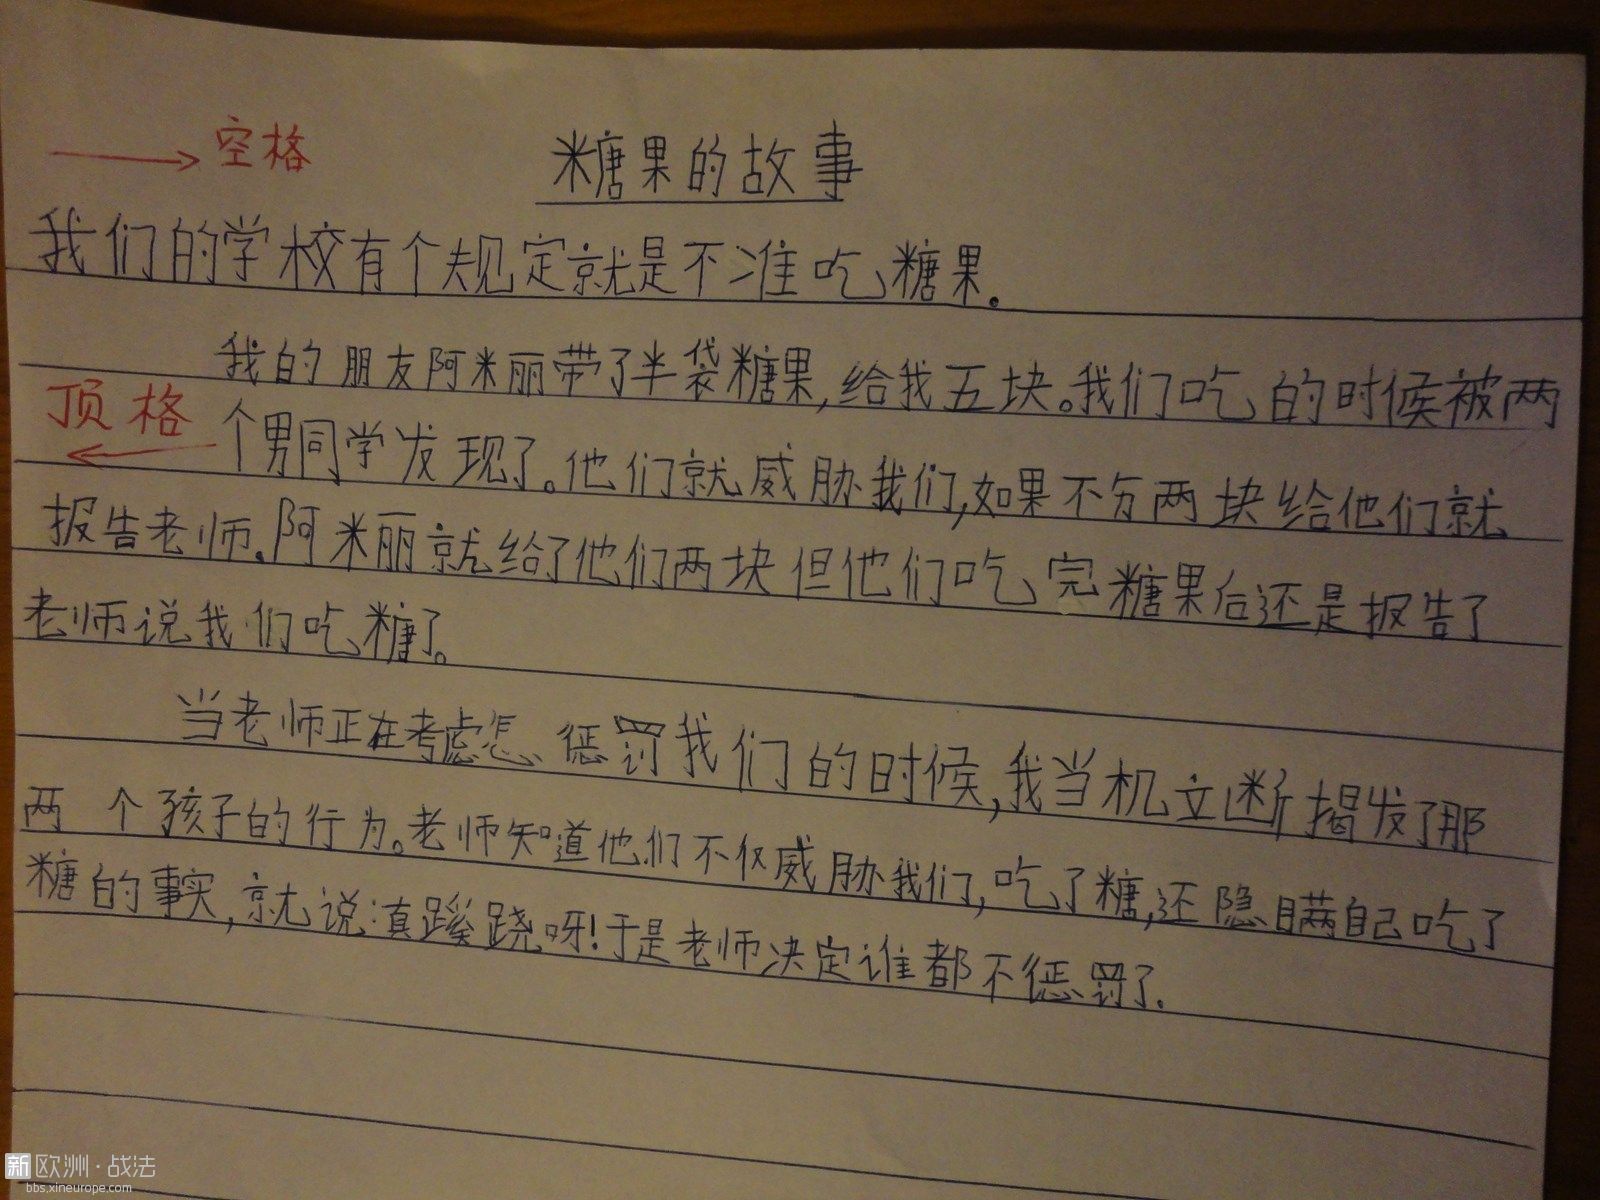 空格
糖果的故事
我们的学校有个规定就是不准吃糖果.
我的朋友阿米丽带了半袋糖果,给我五块。我们吃的时候被两
顶格
个男同学发现了。他们就威胁我们,如果不分两块给他们就
报告老师.阿米丽就给了他们两块但他们吃完糖果后还是报告了
老师说我们吃糖了。
当老师正在考虑怎惩罚我们的时候,我当机立断揭发了那
两个孩子的行为。老师知道他们不仅威胁我们,吃了糖,还隐瞒自己吃了
糖的事实,就说:真蹊跷呀!于是老师决定谁都不惩罚了.
新欧洲·战法
bbs.xineurope.com